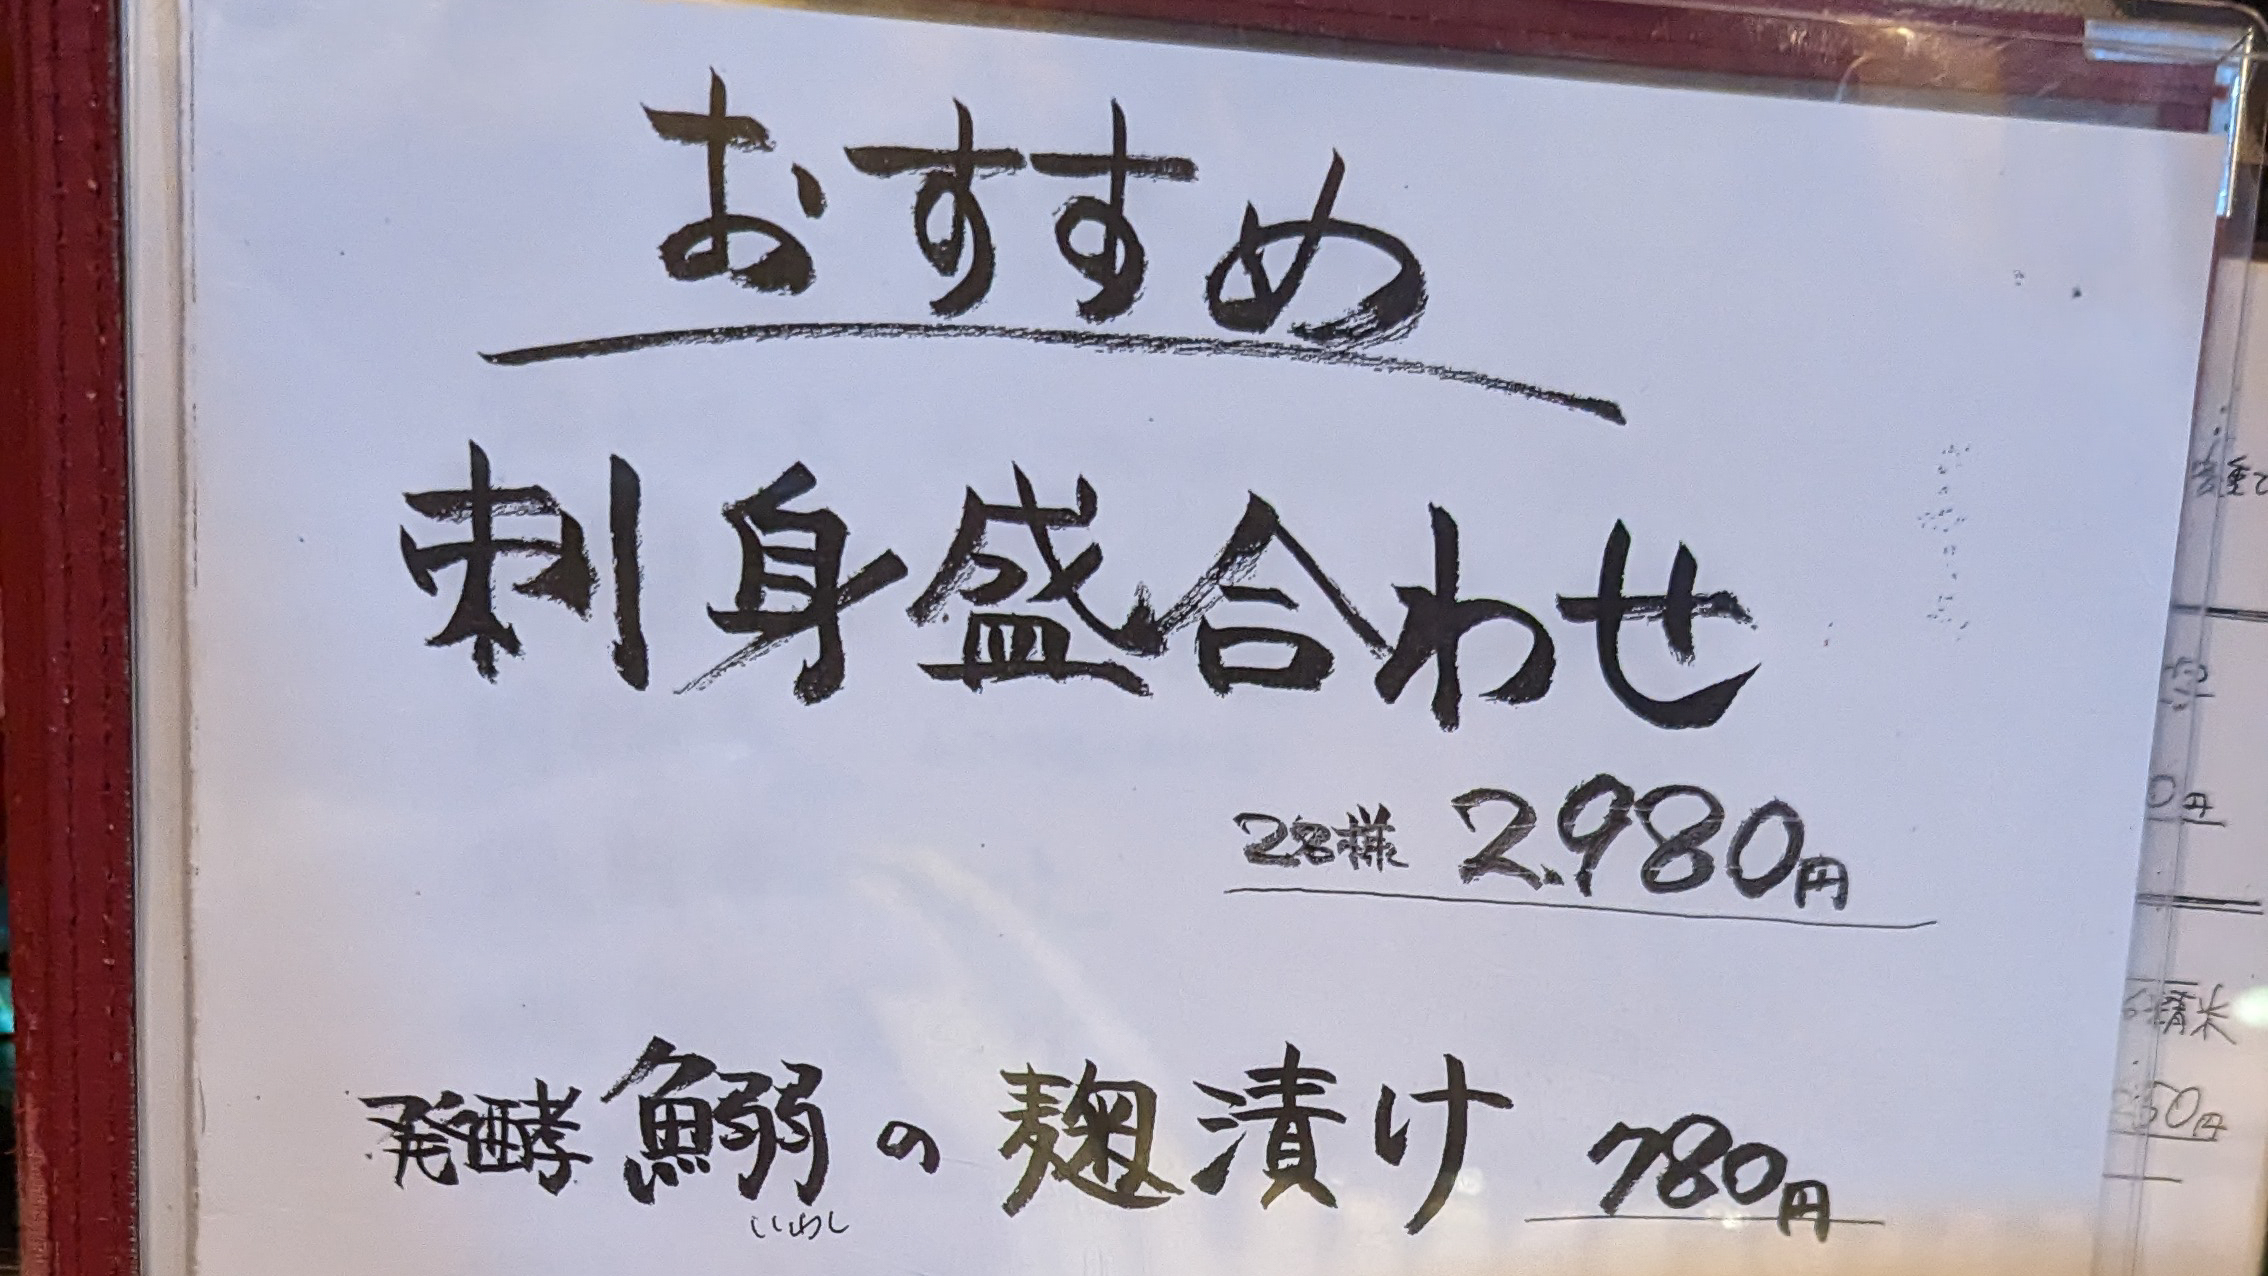 おすすめ
刺身盛合わせ
2名様 2.980円
発酵 鰯の麹漬け 780円
いわし
重
0円
精米
50円